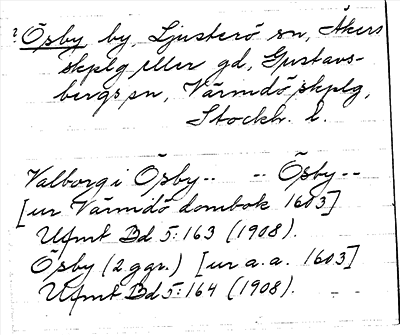 ? Ösby by, Ljusterö sn, Åkers
skplg eller gd, Gustavs-
bergs sn, Värmdö skplg,
Stockh. l.
Valborg i Ösby -- -- Ösby --
[ur Värmdö dombok 1603]
Ufmt Bd 5:163 (1908).
Ösby (2 ggr.) [ur a.a. 1603]
Ufmt Bd 5:164 (1908).